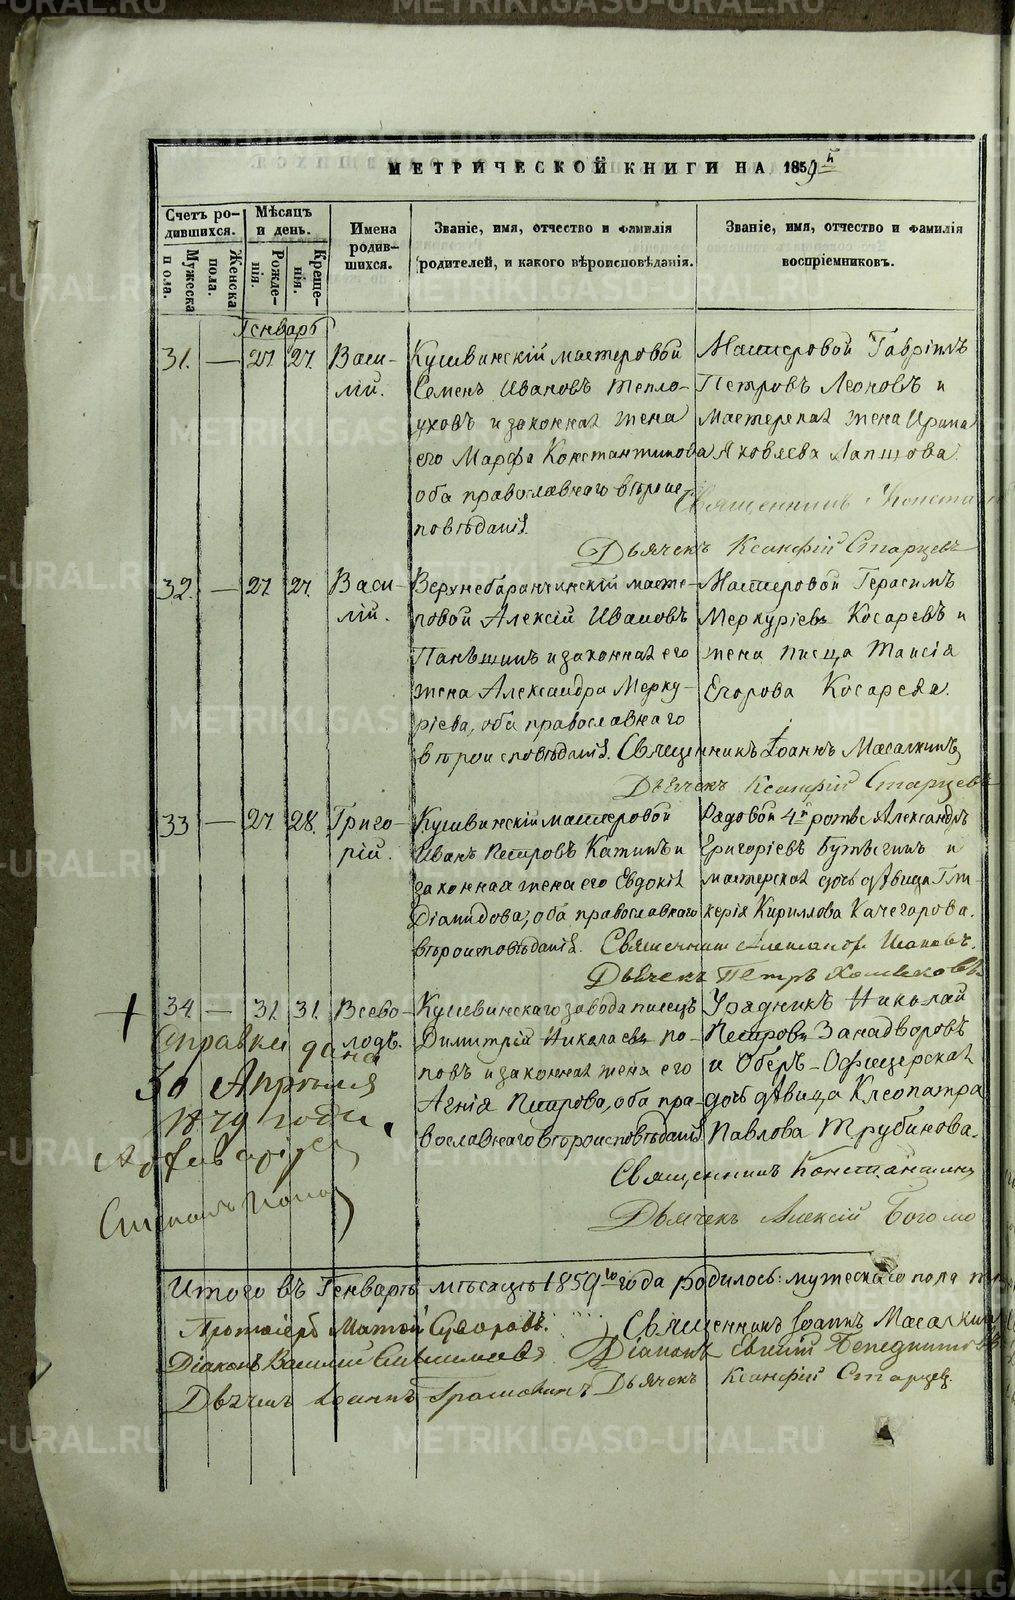 МЕТРИЧЕСКОЙ КНИГИ НА 1859й
Счетъ ро-
дившихся.
Мѣсяцъ
и день.
Имена
родив-
шихся.
Званіе, имя, отчество и фамилія
родителей, и какого вѣроисповѣданія.
Званіе, имя, отчество и фамилія
воспріемниковъ.
Мужеска
пола.
Женска
пола.
Рожде-
нія.
Креще-
нія.
Генварь
31. — 27. 27. Васи-
лій.
Кушвинскій мастеровой
Семенъ Ивановъ Тепло-
уховъ и законная жена
его Марфа Константинова
оба православнаго вѣроис-
повѣданія.
Мастеровой Гавріилъ
Петровъ Леоновъ и
Мастерская жена Ирина
Яковлева Лапшова.
Священникъ Конста
Дьячекъ Ксанфій Старцевъ
32. — 27. 27. Васи-
лій.
Верхнебаранчинскій масте-
ровой Алексій Ивановъ
Паньшинъ и законная его
жена Александра Мерку-
ріева, оба православнаго
вѣроисповѣданія.
Мастеровой Герасимъ
Меркуріевъ Косаревъ и
жена писца Таисія
Егорова Косарева.
Священникъ Іоаннъ Масалкинъ
Дьячекъ Ксанфій Старцевъ
33 — 27 28. Григо-
рій.
Кушвинскій мастеровой
Иванъ Петровъ Катинъ и
законная жена его Евдокія
Діамидова, оба православнаго
вѣроисповѣданія.
Рядовой 4й роты Александръ
Григорьевъ Бутыгинъ и
мастерская дочь дѣвица Гли-
керія Кириллова Качегарова.
Священник
Дьячекъ Петръ
34 — 31. 31. Всево-
лодъ.
Кушвинскаго завода писецъ
Димитрій Николаевъ По-
повъ и законная жена его
Агнія Петрова, оба пра-
вославнаго вѣроисповѣданія
Урядникъ Николай
Петровъ Занадворовъ
и Оберъ-Офицерская
дочь дѣвица Клеопатра
Павлова Трубинова.
Священникъ Константинъ
Дьячекъ Алексій Богомо
Справка дана
30 Апрѣля
1879 года.
Итого въ Генварѣ мѣсяцѣ 1859го года родилось: мужескаго пола
Протоіерей Матѳій Суворовъ. Священникъ Іоаннъ Масалкинъ
Діаконъ Василій Діаконъ Евгеній
Дьячекъ Іоаннъ Дьячекъ Ксанфій Старцев.
METRIKI.GASO-URAL.RU